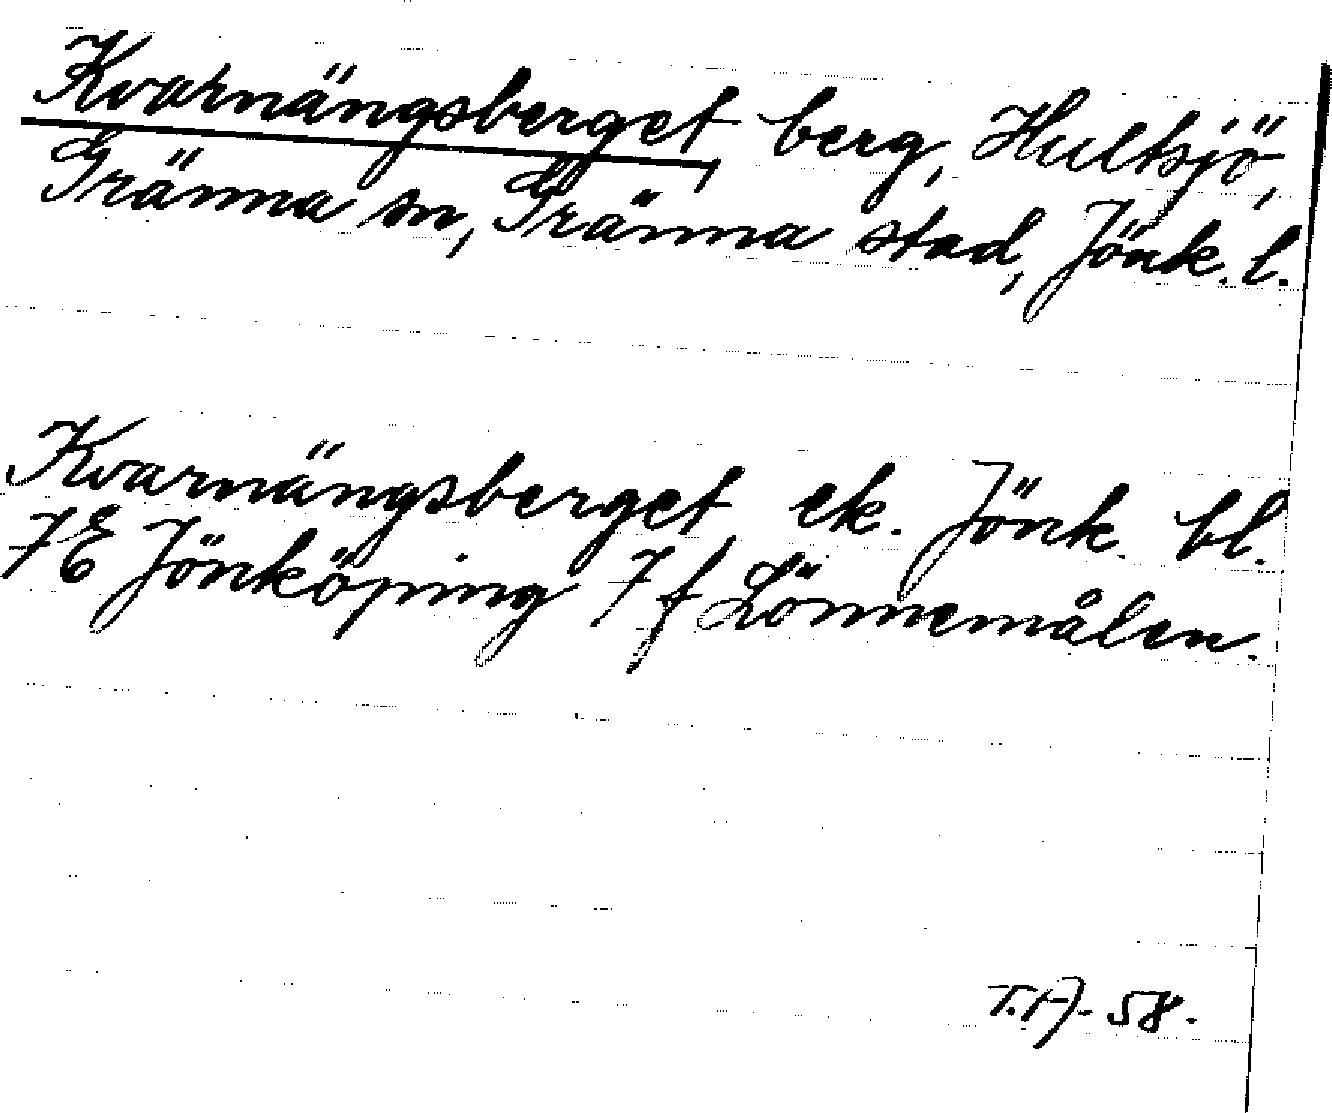 Kvarnängsberget, berg, Hultsjö,
Gränna sn, Gränna stad, Jönk. l.
Kvarnängsberget ek. Jönk. bl.
7E Jönköping 7f Lönnemålen.
T.A. 58.